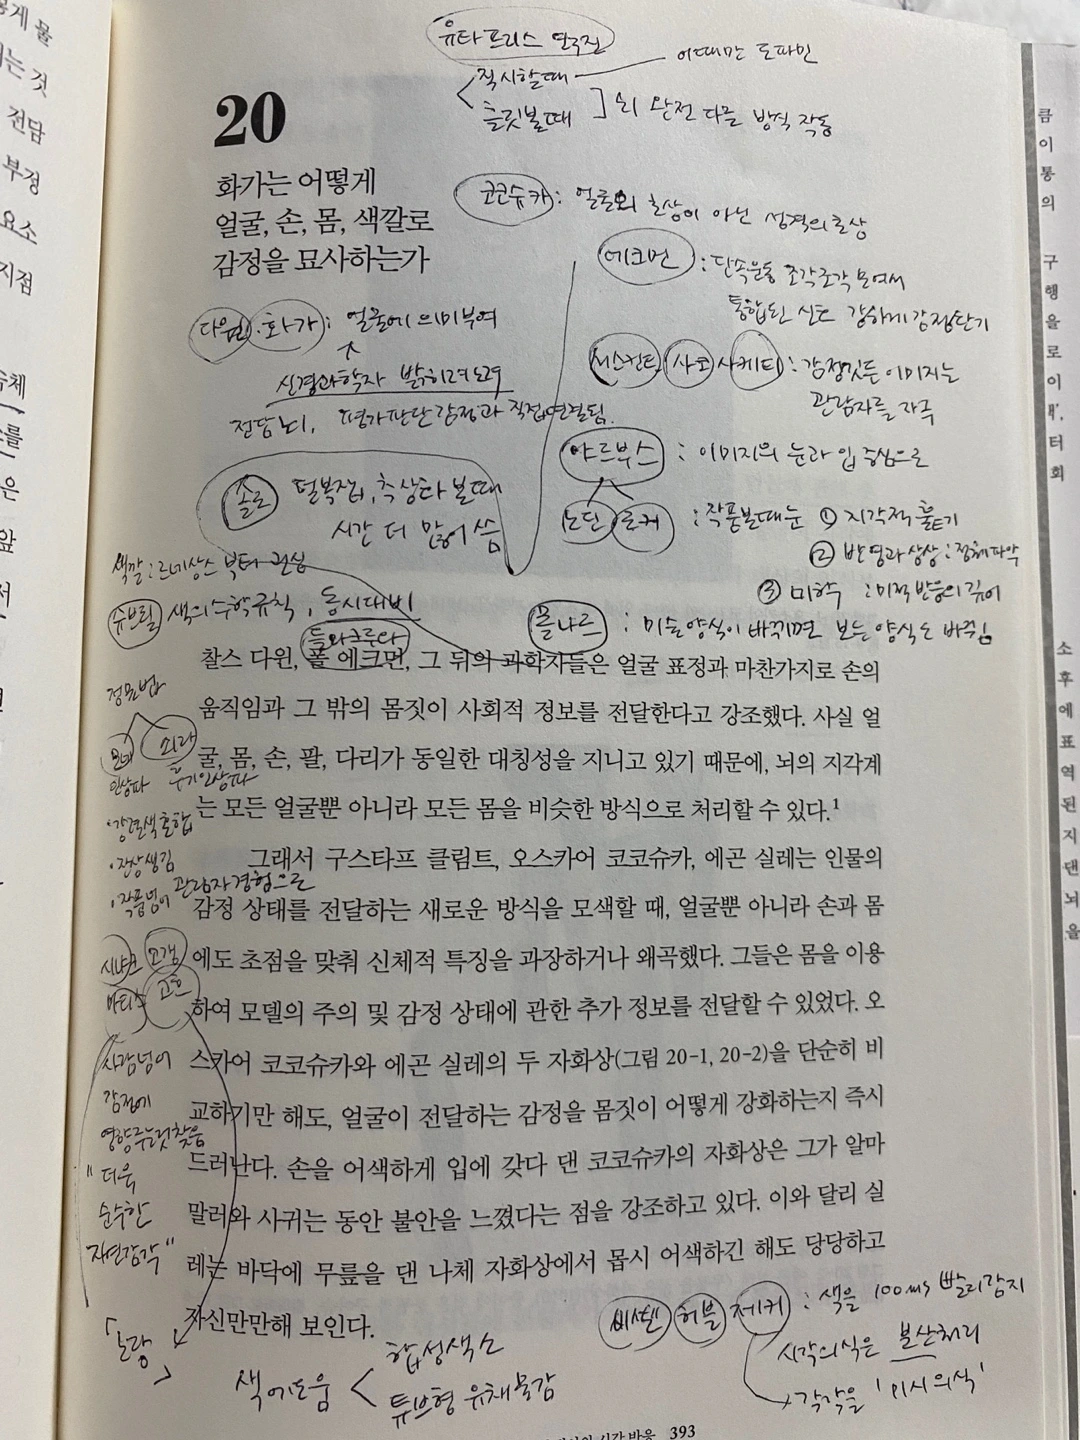 유타 프리스 연구진
직시할때 — 어때만 도파민
흘깃볼때 ] 뇌 완전 다른 방식 작동
20
화가는 어떻게
얼굴, 손, 몸, 색깔로
감정을 묘사하는가
코코슈카 : 얼굴의 초상이 아닌 성격의 초상
에크먼 : 단속운동 조각조각 모여서
통합된 신호 강하게 감정단기
다윈 · 화가 : 얼굴에 의미부여
신경과학자 밝히려 노력
전담뇌, 평가판단 감정과 직접 연결됨.
서스킨드 사코 사케티 : 감정있는 이미지는
관람자를 자극
야르부스 : 이미지의 눈과 입 중심으로
솔로 덜 복잡, 추상화 볼때
시간 더 많이 씀
노딘 로커 : 작품볼때 눈 ① 지각적 훑기
② 반영과 상상 : 정체파악
③ 미학 : 미적 반응의 깊이
몰나르 : 미술양식이 바뀌면 보는 양식도 바뀜
색깔 : 르네상스 부터 관심
슈브뢸 색의 수학규칙, 동시대비
들라크루아
찰스 다윈, 폴 에크먼, 그 뒤의 과학자들은 얼굴 표정과 마찬가지로 손의
움직임과 그 밖의 몸짓이 사회적 정보를 전달한다고 강조했다. 사실 얼
굴, 몸, 손, 팔, 다리가 동일한 대칭성을 지니고 있기 때문에, 뇌의 지각계
는 모든 얼굴뿐 아니라 모든 몸을 비슷한 방식으로 처리할 수 있다.¹
그래서 구스타프 클림트, 오스카어 코코슈카, 에곤 실레는 인물의
감정 상태를 전달하는 새로운 방식을 모색할 때, 얼굴뿐 아니라 손과 몸
에도 초점을 맞춰 신체적 특징을 과장하거나 왜곡했다. 그들은 몸을 이용
하여 모델의 주의 및 감정 상태에 관한 추가 정보를 전달할 수 있었다. 오
스카어 코코슈카와 에곤 실레의 두 자화상(그림 20-1, 20-2)을 단순히 비
교하기만 해도, 얼굴이 전달하는 감정을 몸짓이 어떻게 강화하는지 즉시
드러난다. 손을 어색하게 입에 갖다 댄 코코슈카의 자화상은 그가 알마
말러와 사귀는 동안 불안을 느꼈다는 점을 강조하고 있다. 이와 달리 실
레는 바닥에 무릎을 댄 나체 자화상에서 몹시 어색하긴 해도 당당하고
자신만만해 보인다.
점묘법
모네 쇠라
인상파 후기인상파
· 강렬색혼합
· 잔상생김
· 작품넘어 관람자경험으로
시냐크 고갱
마티스 고흐
사감넘어
감정에
영향주는것 찾음
"더욱
순수한
자연감각"
「노랑」
색에 도움 < 합성색소
튜브형 유채물감
비셀 허블 제키 : 색을 100ms 빨리감지
시각의식은 분산처리
각각을 '미시의식'
시각 반응 393